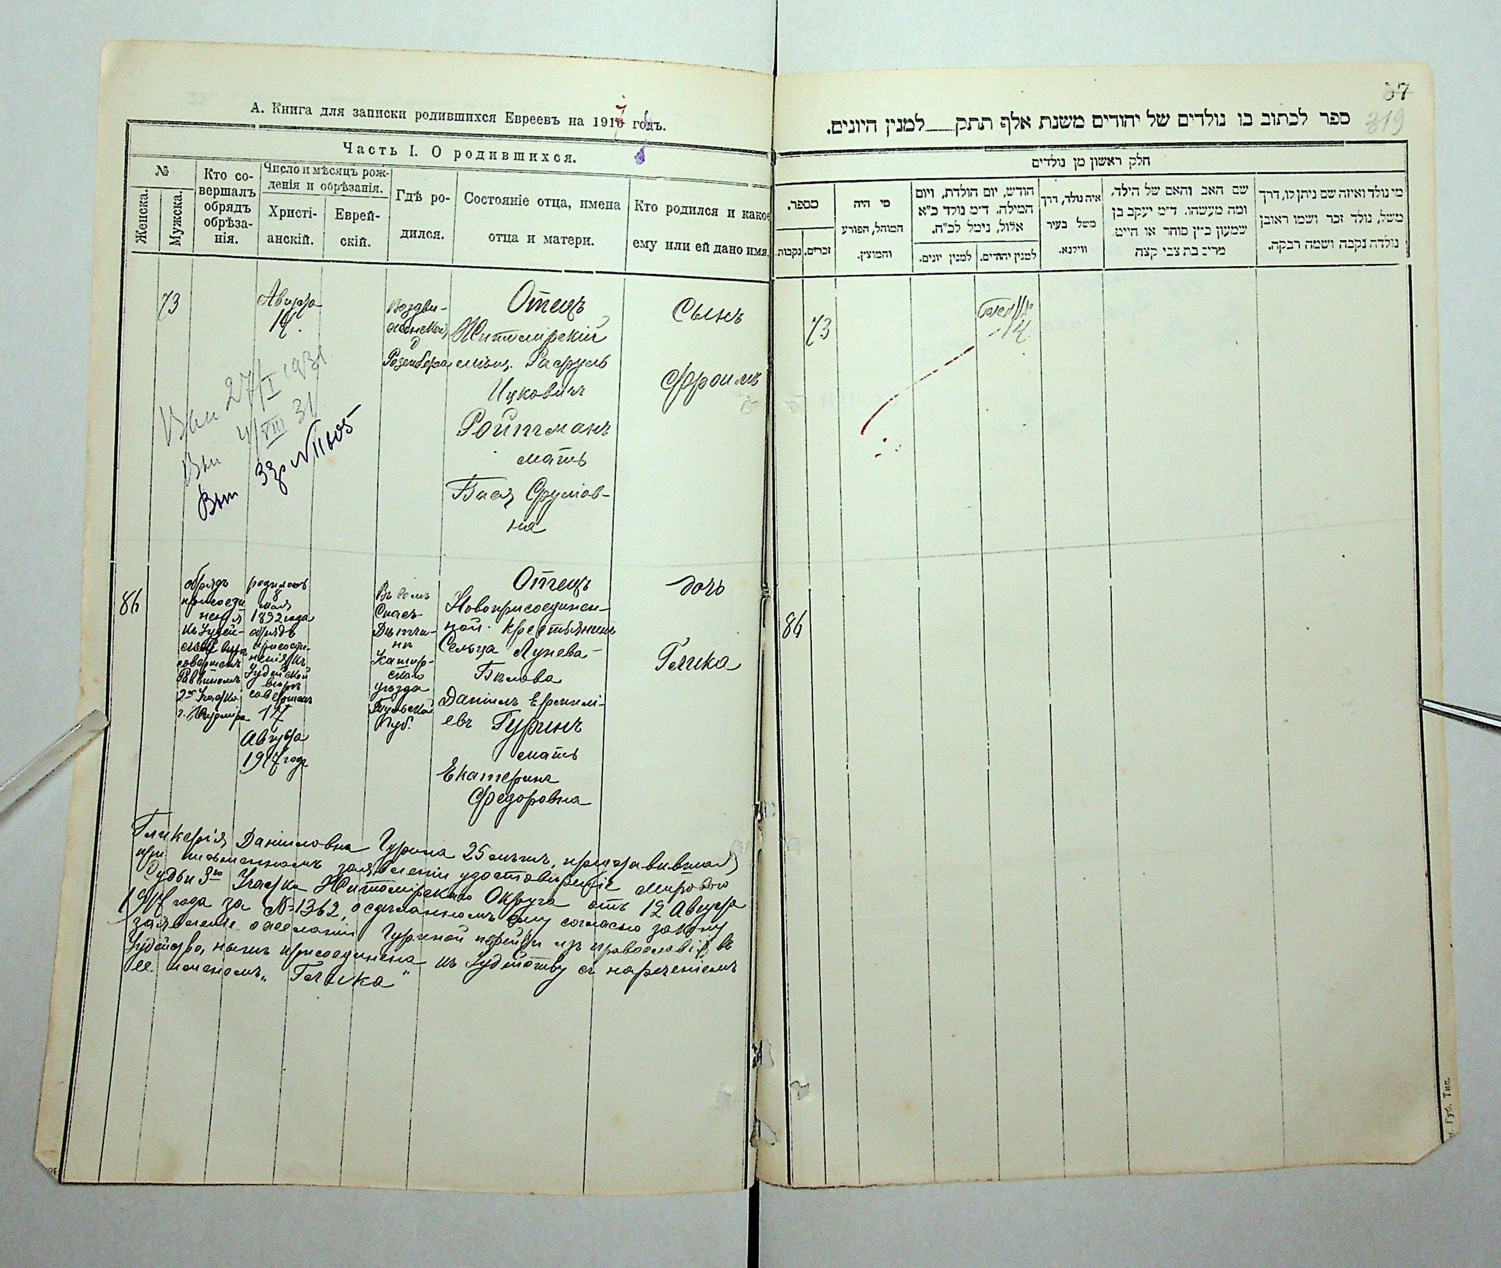 А. Книга для записки родившихся Евреевъ на 1917 годъ.
Часть I. О родившихся.
№
Женска.
Мужска.
Кто со-
вершалъ
обрядъ
обрѣза-
нія.
Число и мѣсяцъ рож-
денія и обрѣзанія.
Христі-
анскій.
Еврей-
скій.
Гдѣ ро-
дился.
Состояніе отца, имена
отца и матери.
Кто родился и какое
ему или ей дано имя.
73
Августа
14.
Воздви-
женской
д
Розенберга
Отецъ
Житомирскій
мѣщ. Расуль
Ицковичъ
Ройтманъ
мать
Бася Фроимов-
на
Сынъ
Фроимъ
Вып 27/I 1931
Вып 4/VIII 31
Вып
86
обрядъ
присоеди
ненія
къ Іудей-
ской вѣрѣ
совершенъ
Раввиномъ
2го Участка
г. Житомира
родилась
мая
1892 года
обрядъ
присоеди-
ненія къ
Іудейской
вѣрѣ
совершенъ
17
Августа
1917 года
Въ селѣ
Спасъ-
Дѣтчи-
ни
Кашир-
скаго
уѣзда
Тульской
Губ.
Отецъ
Новоприсоединен-
ной крестьянинъ
Сельца Лунева-
Бѣлова
Даніилъ Ермилі-
евъ Гуринъ
мать
Екатерина
Федоровна
дочь
Гелика
Гликерія Даниловна Гурина 25 лѣтъ, представившая
при письменномъ заявленіи удостовѣреніе Мирового
Судьи 3го Участка Житомірскаго Округа отъ 12 Августа
1917 года за №1362, о сдѣланномъ ему согласно закону
заявленіе о желаніи Гуриной перейти изъ православія въ
Іудейство, нынѣ присоединена къ Іудейству съ нареченіемъ
ее именемъ „Гелика“
37
319
ספר לכתוב בו נולדים של יהודים משנת אלף תתק___למנין היונים.
חלק ראשון מן נולדים
מספר.
נקבות.
זכרים.
מי היה
המוהל, הפורע
והמוצץ.
חודש, יום הולדת, ויום
המילה. ד״מ נולד כ״א
אלול, נימל לכ״ח.
למנין יונים.
למנין יהודים.
איה נולד, דרך
משל בעיר
ווילנא.
שם האב והאם של הילד,
ומה מעשהו. ד״מ יעקב בן
שמעון כ״ץ סוחר או חייט
מרים בת צבי קצה
מי נולד ואיזה שם ניתן לו, דרך
משל, נולד זכר ושמו ראובן
נולדה נקבה ושמה רבקה.
73
14
86
Губ. Тип.